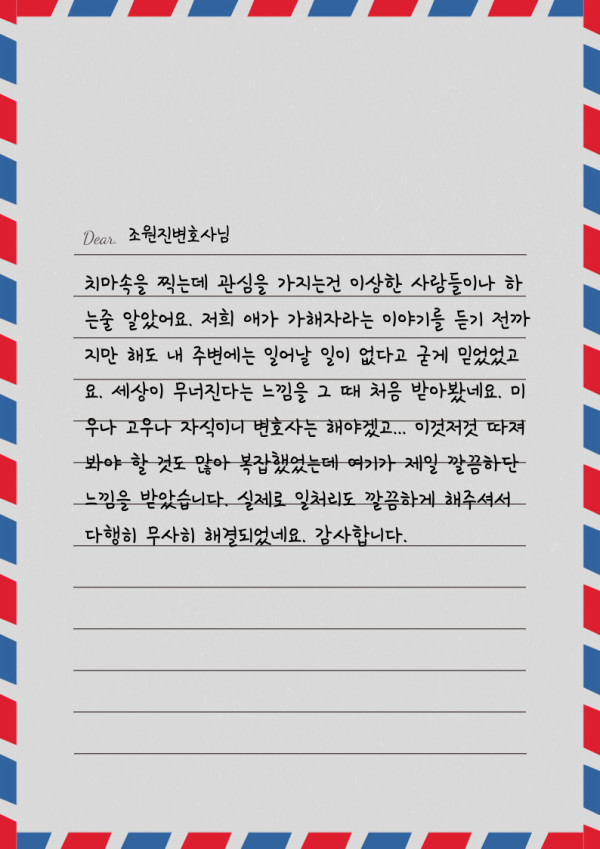 Dear. 조원진변호사님
치마속을 찍는데 관심을 가지는건 이상한 사람들이나 하
는줄 알았어요. 저희 애가 가해자라는 이야기를 듣기 전까
지만 해도 내 주변에는 일어날 일이 없다고 굳게 믿었었고
요. 세상이 무너진다는 느낌을 그 때 처음 받아봤네요. 미
우나 고우나 자식이니 변호사는 해야겠고... 이것저것 따져
봐야 할 것도 많아 복잡했었는데 여기가 제일 깔끔하단
느낌을 받았습니다. 실제로 일처리도 깔끔하게 해주셔서
다행히 무사히 해결되었네요. 감사합니다.